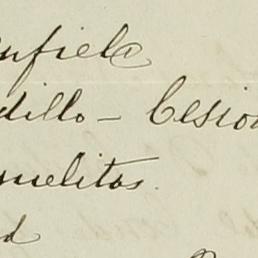 nfiel
dillo – Cesion
melitos.
d